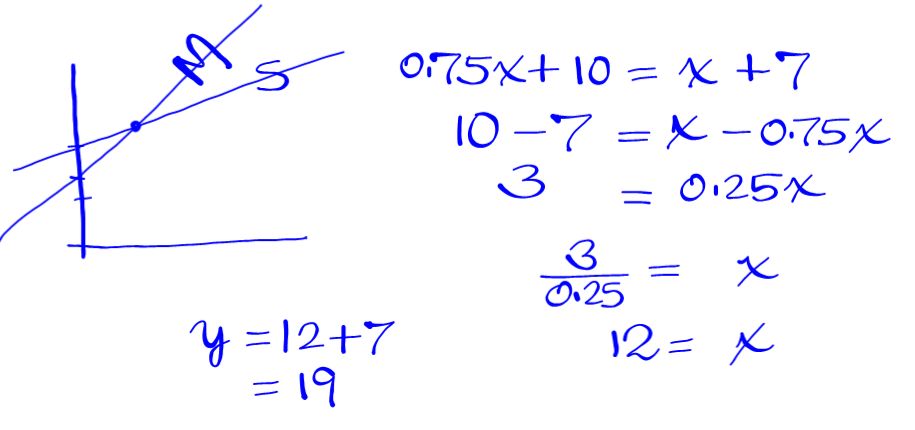 M
S
0.75x + 10 = x + 7
10 - 7 = x - 0.75x
3 = 0.25x
3/0.25 = x
12 = x
y = 12 + 7
= 19